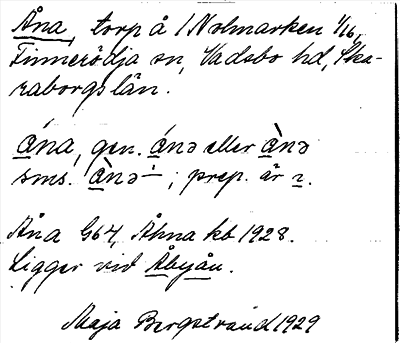 Åna, torp å 1 Nolmarken 1/16,
Finnerödja sn, Vadsbo hd, Ska-
raborgs län.
ána, gen. ánə eller ànə
sms. ànə-; prep. är
Åna G64, Åhna kb 1928.
Ligger vid Åbyån.
Maja Bergstrand 1929